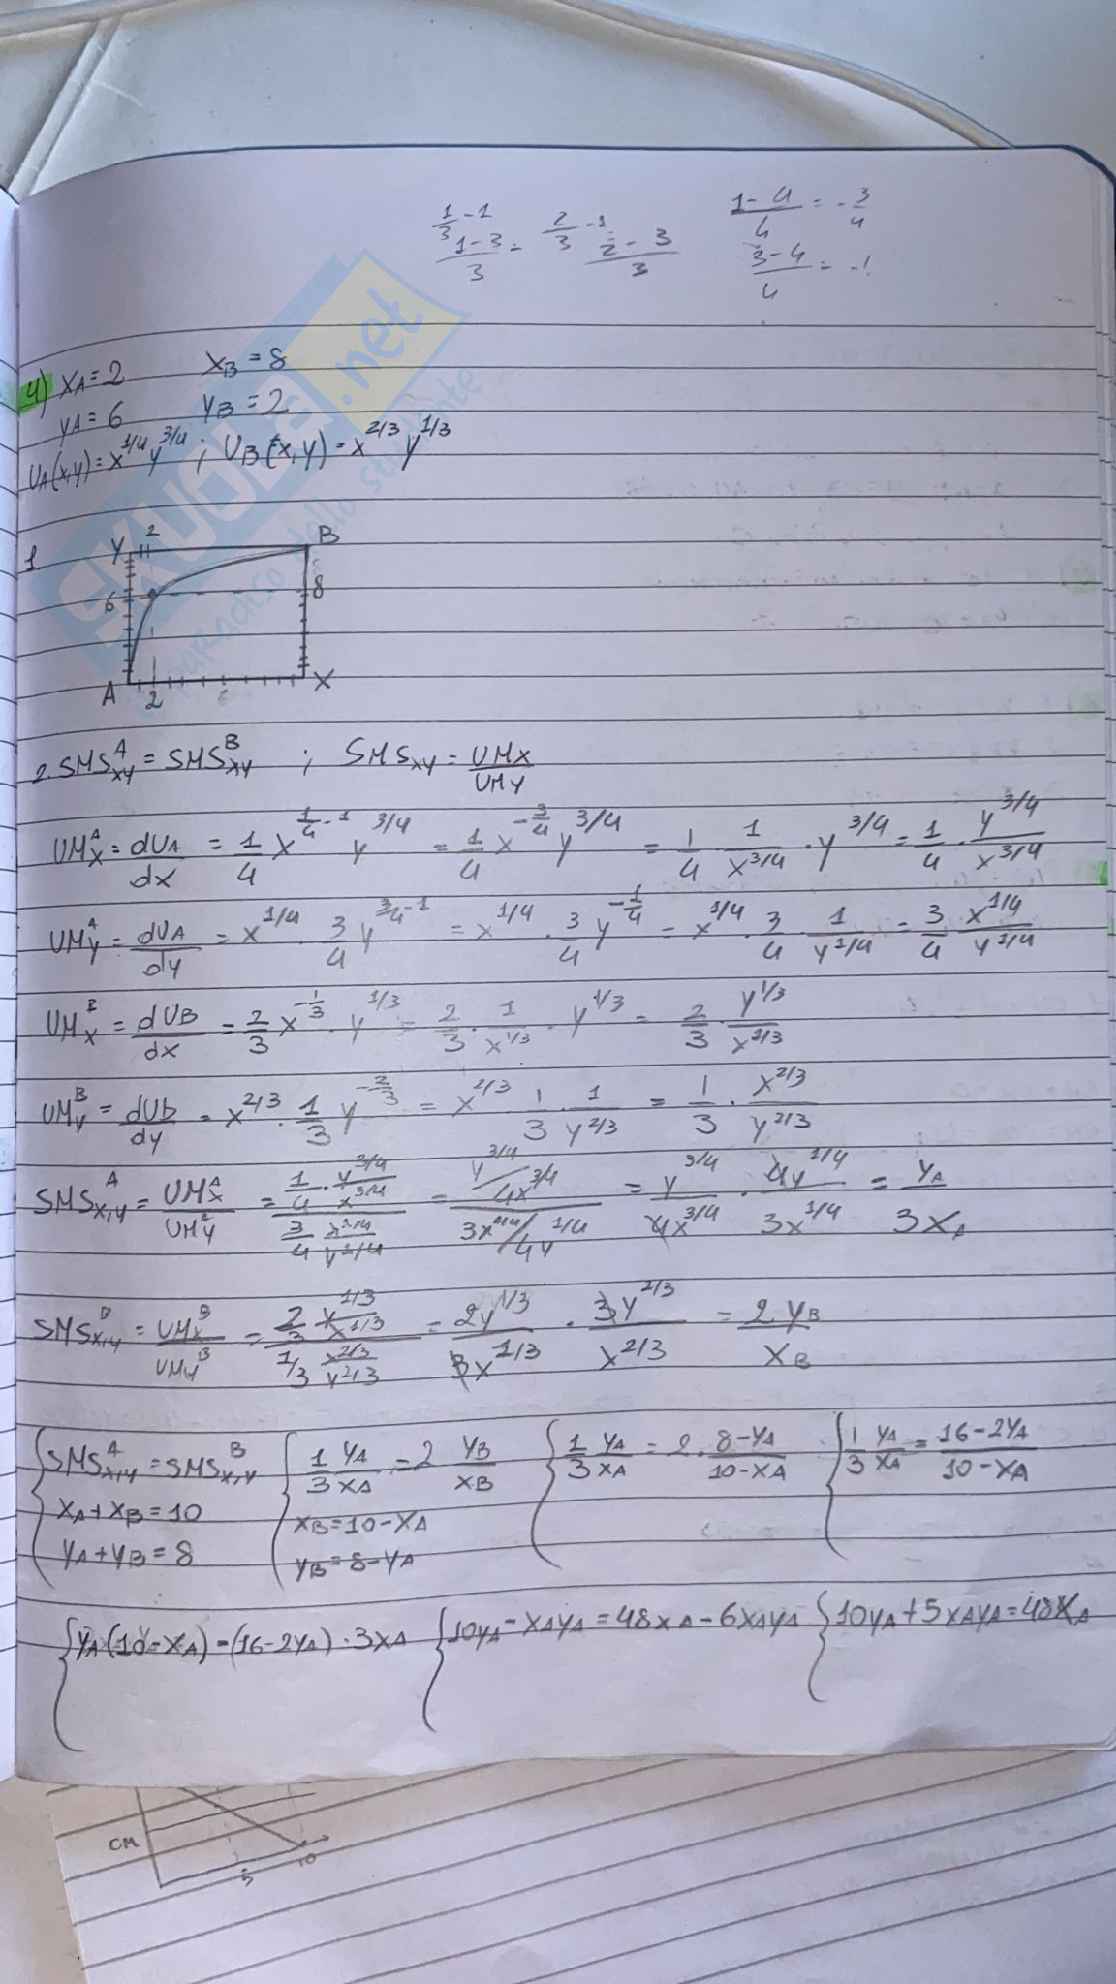 1/3 - 1    2/3 - 1    (1-4)/4 = -3/4
(1-3)/3 =    (2-3)/3    (3-4)/4 = -1
4) XA = 2    XB = 8
YA = 6    YB = 2
UA(x,y) = x^1/4 y^3/4 ; UB(x,y) = x^2/3 y^1/3
SKUOLA.net
1
Y 2 B
6 8
A 2 X
2. SMS^A_XY = SMS^B_XY ; SMS_XY = UMX/UMY
UM^A_X = dUA/dx = 1/4 x^(1/4 - 1) y^3/4 = 1/4 x^-3/4 y^3/4 = 1/4 · 1/x^3/4 · y^3/4 = 1/4 · y^3/4 / x^3/4
UM^A_Y = dUA/dy = x^1/4 · 3/4 y^(3/4 - 1) = x^1/4 · 3/4 y^-1/4 = x^1/4 · 3/4 · 1/y^1/4 = 3/4 x^1/4 / y^1/4
UM^B_X = dUB/dx = 2/3 x^-1/3 · y^1/3 = 2/3 · 1/x^1/3 · y^1/3 = 2/3 · y^1/3 / x^1/3
UM^B_Y = dUb/dy = x^2/3 · 1/3 y^-2/3 = x^2/3 1/3 · 1/y^2/3 = 1/3 · x^2/3 / y^2/3
SMS^A_X,Y = UM^A_X / UM^A_Y = (1/4 · y^3/4 / x^3/4) / (3/4 x^1/4 / y^1/4) = (y^3/4 / 4x^3/4) / (3x^1/4 / 4y^1/4) = y^3/4 / 4x^3/4 · 4y^1/4 / 3x^1/4 = YA / 3XA
SMS^B_X,Y = UM^B_X / UM^B_Y = (2/3 y^1/3 / x^1/3) / (1/3 x^2/3 / y^2/3) = 2y^1/3 / 3x^1/3 · 3y^2/3 / x^2/3 = 2YB / XB
{ SMS^A_X,Y = SMS^B_X,Y    { 1/3 YA/XA = 2 YB/XB    { 1/3 YA/XA = 2 · (8-YA)/(10-XA)    { 1/3 YA/XA = (16-2YA)/(10-XA)
XA + XB = 10    XB = 10 - XA
YA + YB = 8    YB = 8 - YA
{ YA(10 - XA) = (16 - 2YA) · 3XA    { 10YA - XAYA = 48XA - 6XAYA    { 10YA + 5XAYA = 48XA
CM
5 10